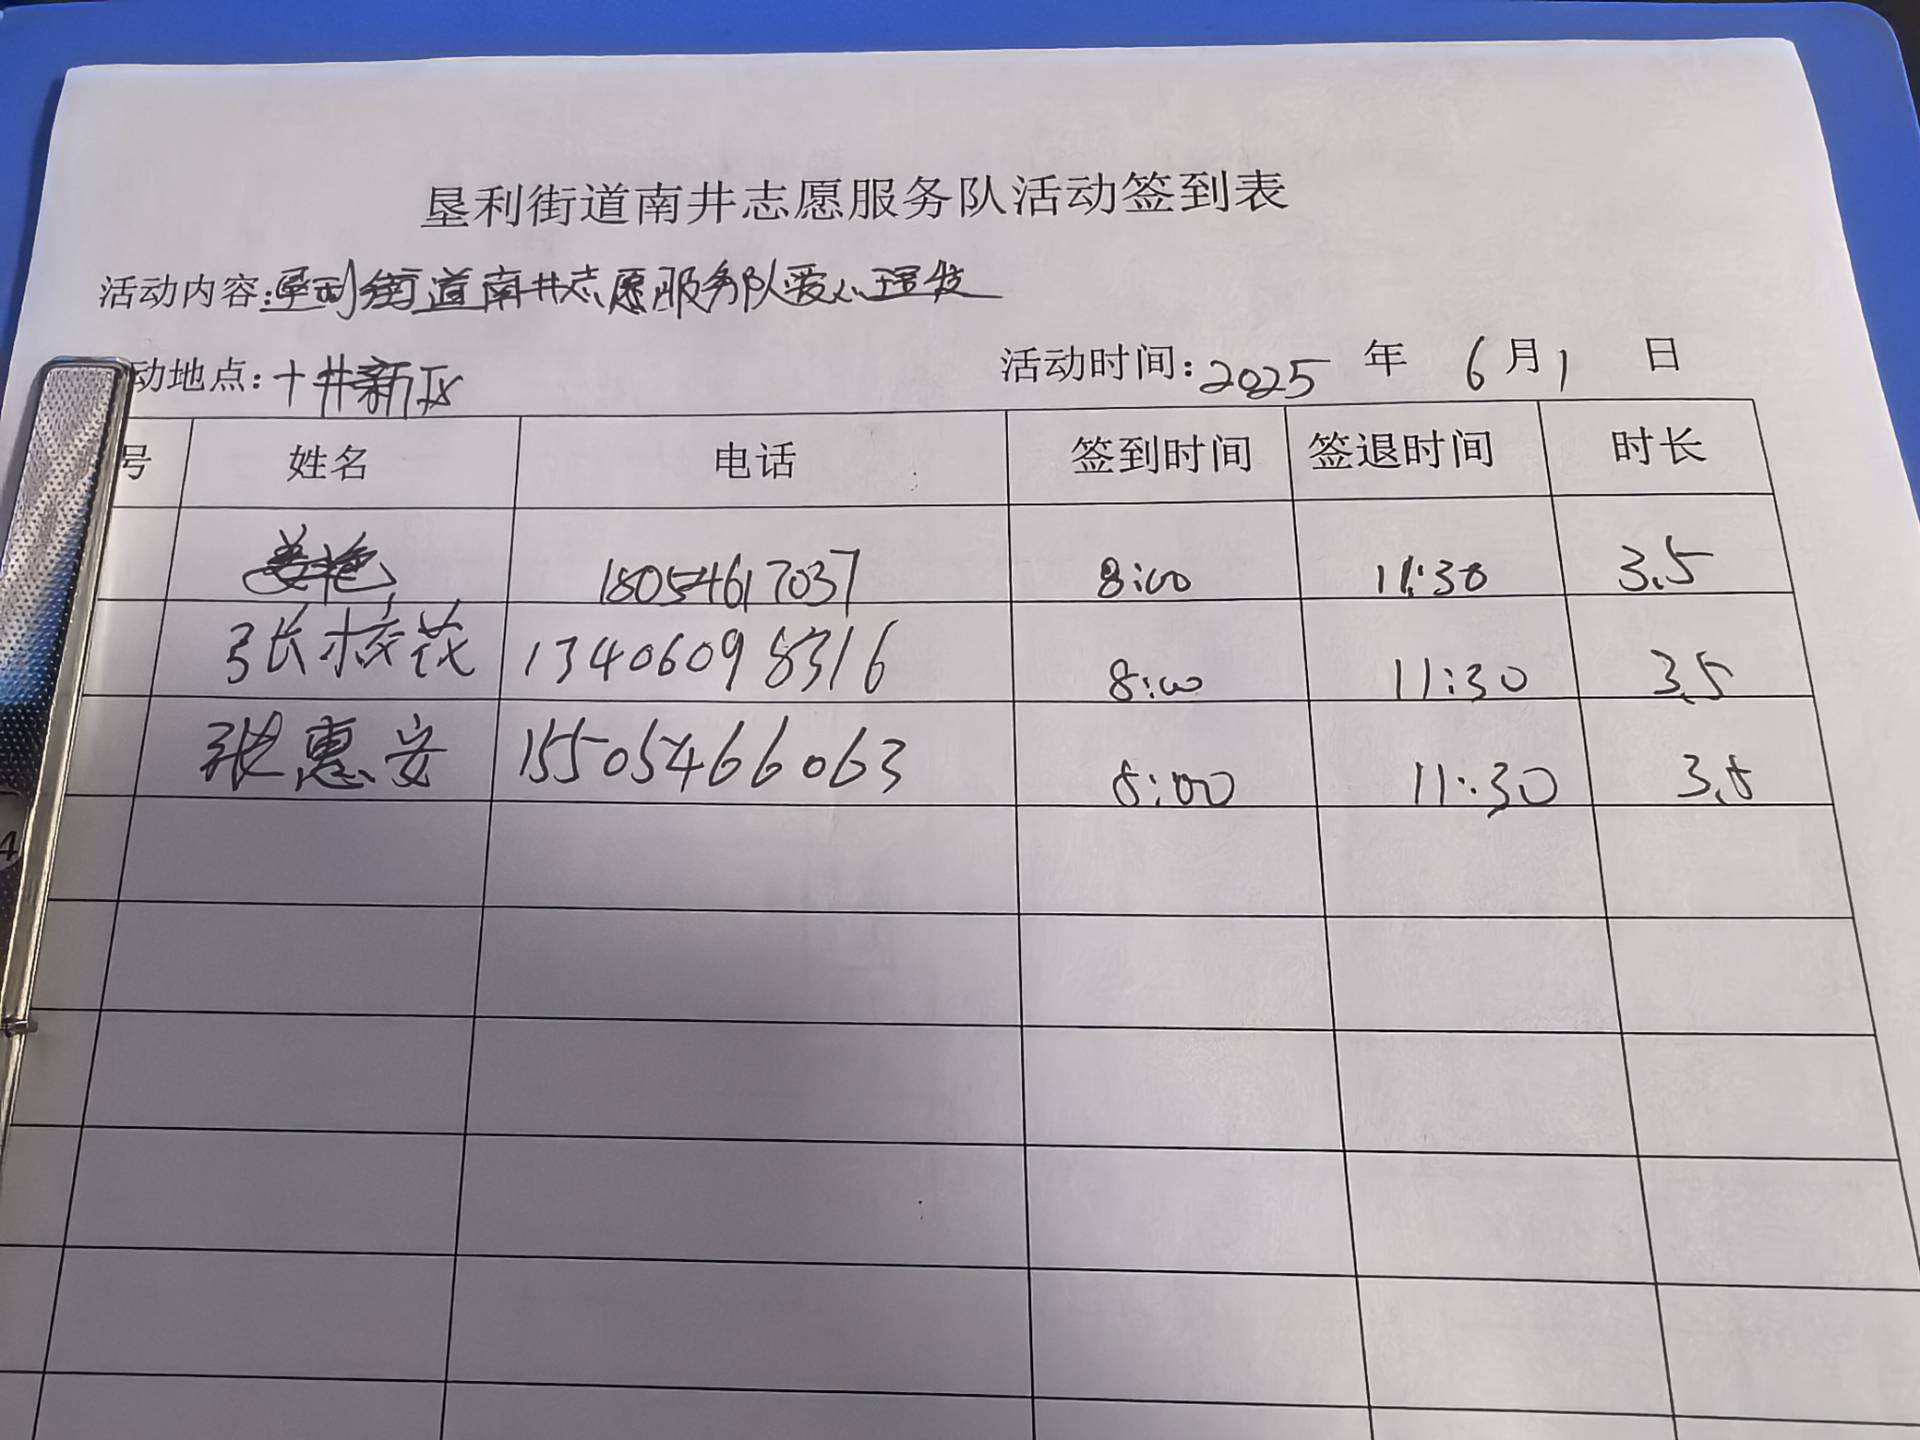 垦利街道南井志愿服务队活动签到表
活动内容:垦利街道南井志愿服务队爱心理发
动地点:十井新区 活动时间:2025 年 6月1 日
号 姓名 电话 签到时间 签退时间 时长
姜艳 18054617037 8:00 11:30 3.5
张校花 13406098316 8:00 11:30 3.5
张惠安 15505466063 8:00 11:30 3.5